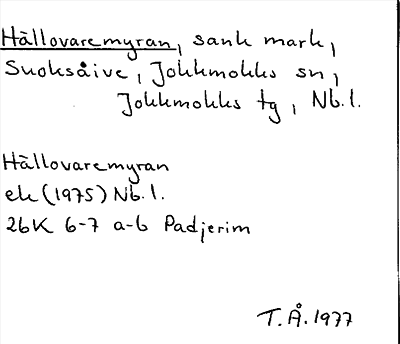 Hällovaremyran, sank mark,
Suoksåive, Jokkmokks sn,
Jokkmokks tg, Nb.l.
Hällovaremyran
ek (1975) Nb.l.
26K 6-7 a-b Padjerim
T.Å. 1977